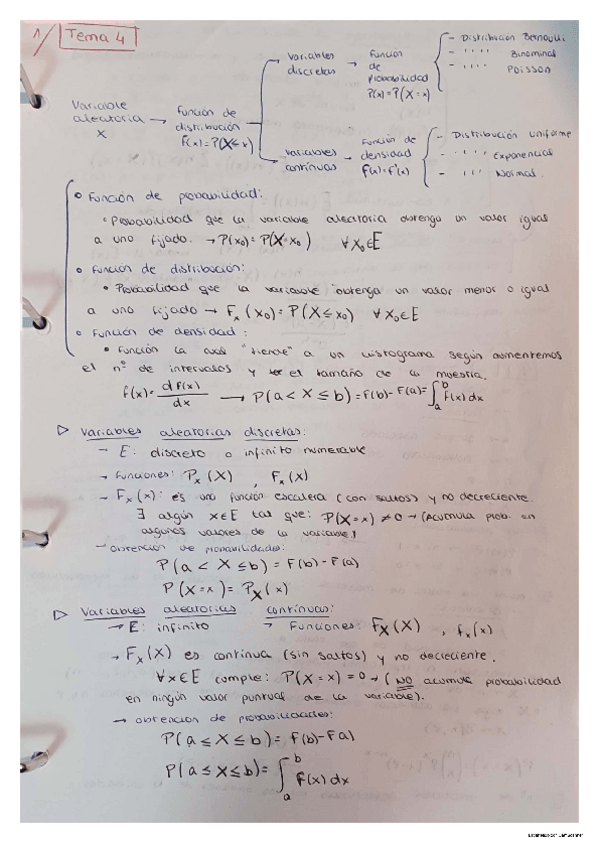 1/ Tema 4
Variable aleatoria X → Función de distribución F(x)=P(X≤x)
variables discretas → Función de probabilidad P(x)=P(X=x)
- Distribución Bernoulli
- '''' Binominal
- '''' Poisson
variables continuas → Función de densidad f(x)=F'(x)
- Distribución uniforme
- '''' Exponencial
- ''' Normal.
• Función de probabilidad:
• Probabilidad que la variable aleatoria obtenga un valor igual
a uno fijado. → P(x₀)=P(X=x₀) ∀x₀∈E
• Función de distribución:
• Probabilidad que la variable obtenga un valor menor o igual
a uno fijado → Fₓ(x₀)=P(X≤x₀) ∀x₀∈E
• Función de densidad:
• Función la cual "tiende" a un histograma según aumentemos
el nº de intervalos y el tamaño de la muestra.
f(x)= dF(x)/dx → P(a<X≤b)=F(b)-F(a)=∫ₐᵇ f(x)dx
▷ Variables aleatorias discretas:
→ E: discreto o infinito numerable
→ Funciones: Pₓ(X), Fₓ(X)
→ Fₓ(x): es una función escalera (con saltos) y no decreciente.
∃ algún x∈E tal que: P(X=x)≠0 → (Acumula prob. en
algunos valores de la variable)
→ obtención de probabilidades:
P(a<X≤b)=F(b)-F(a)
P(X=x)=Pₓ(x)
▷ Variables aleatorias continuas:
→ E: infinito → Funciones: Fₓ(X), fₓ(x)
→ Fₓ(X) es continua (sin saltos) y no decreciente.
∀x∈E cumple: P(X=x)=0 → (NO acumula probabilidad
en ningún valor puntual de la variable).
→ obtención de probabilidades:
P(a≤X≤b)=F(b)-F(a)
P(a≤X≤b)=∫ₐᵇ f(x)dx